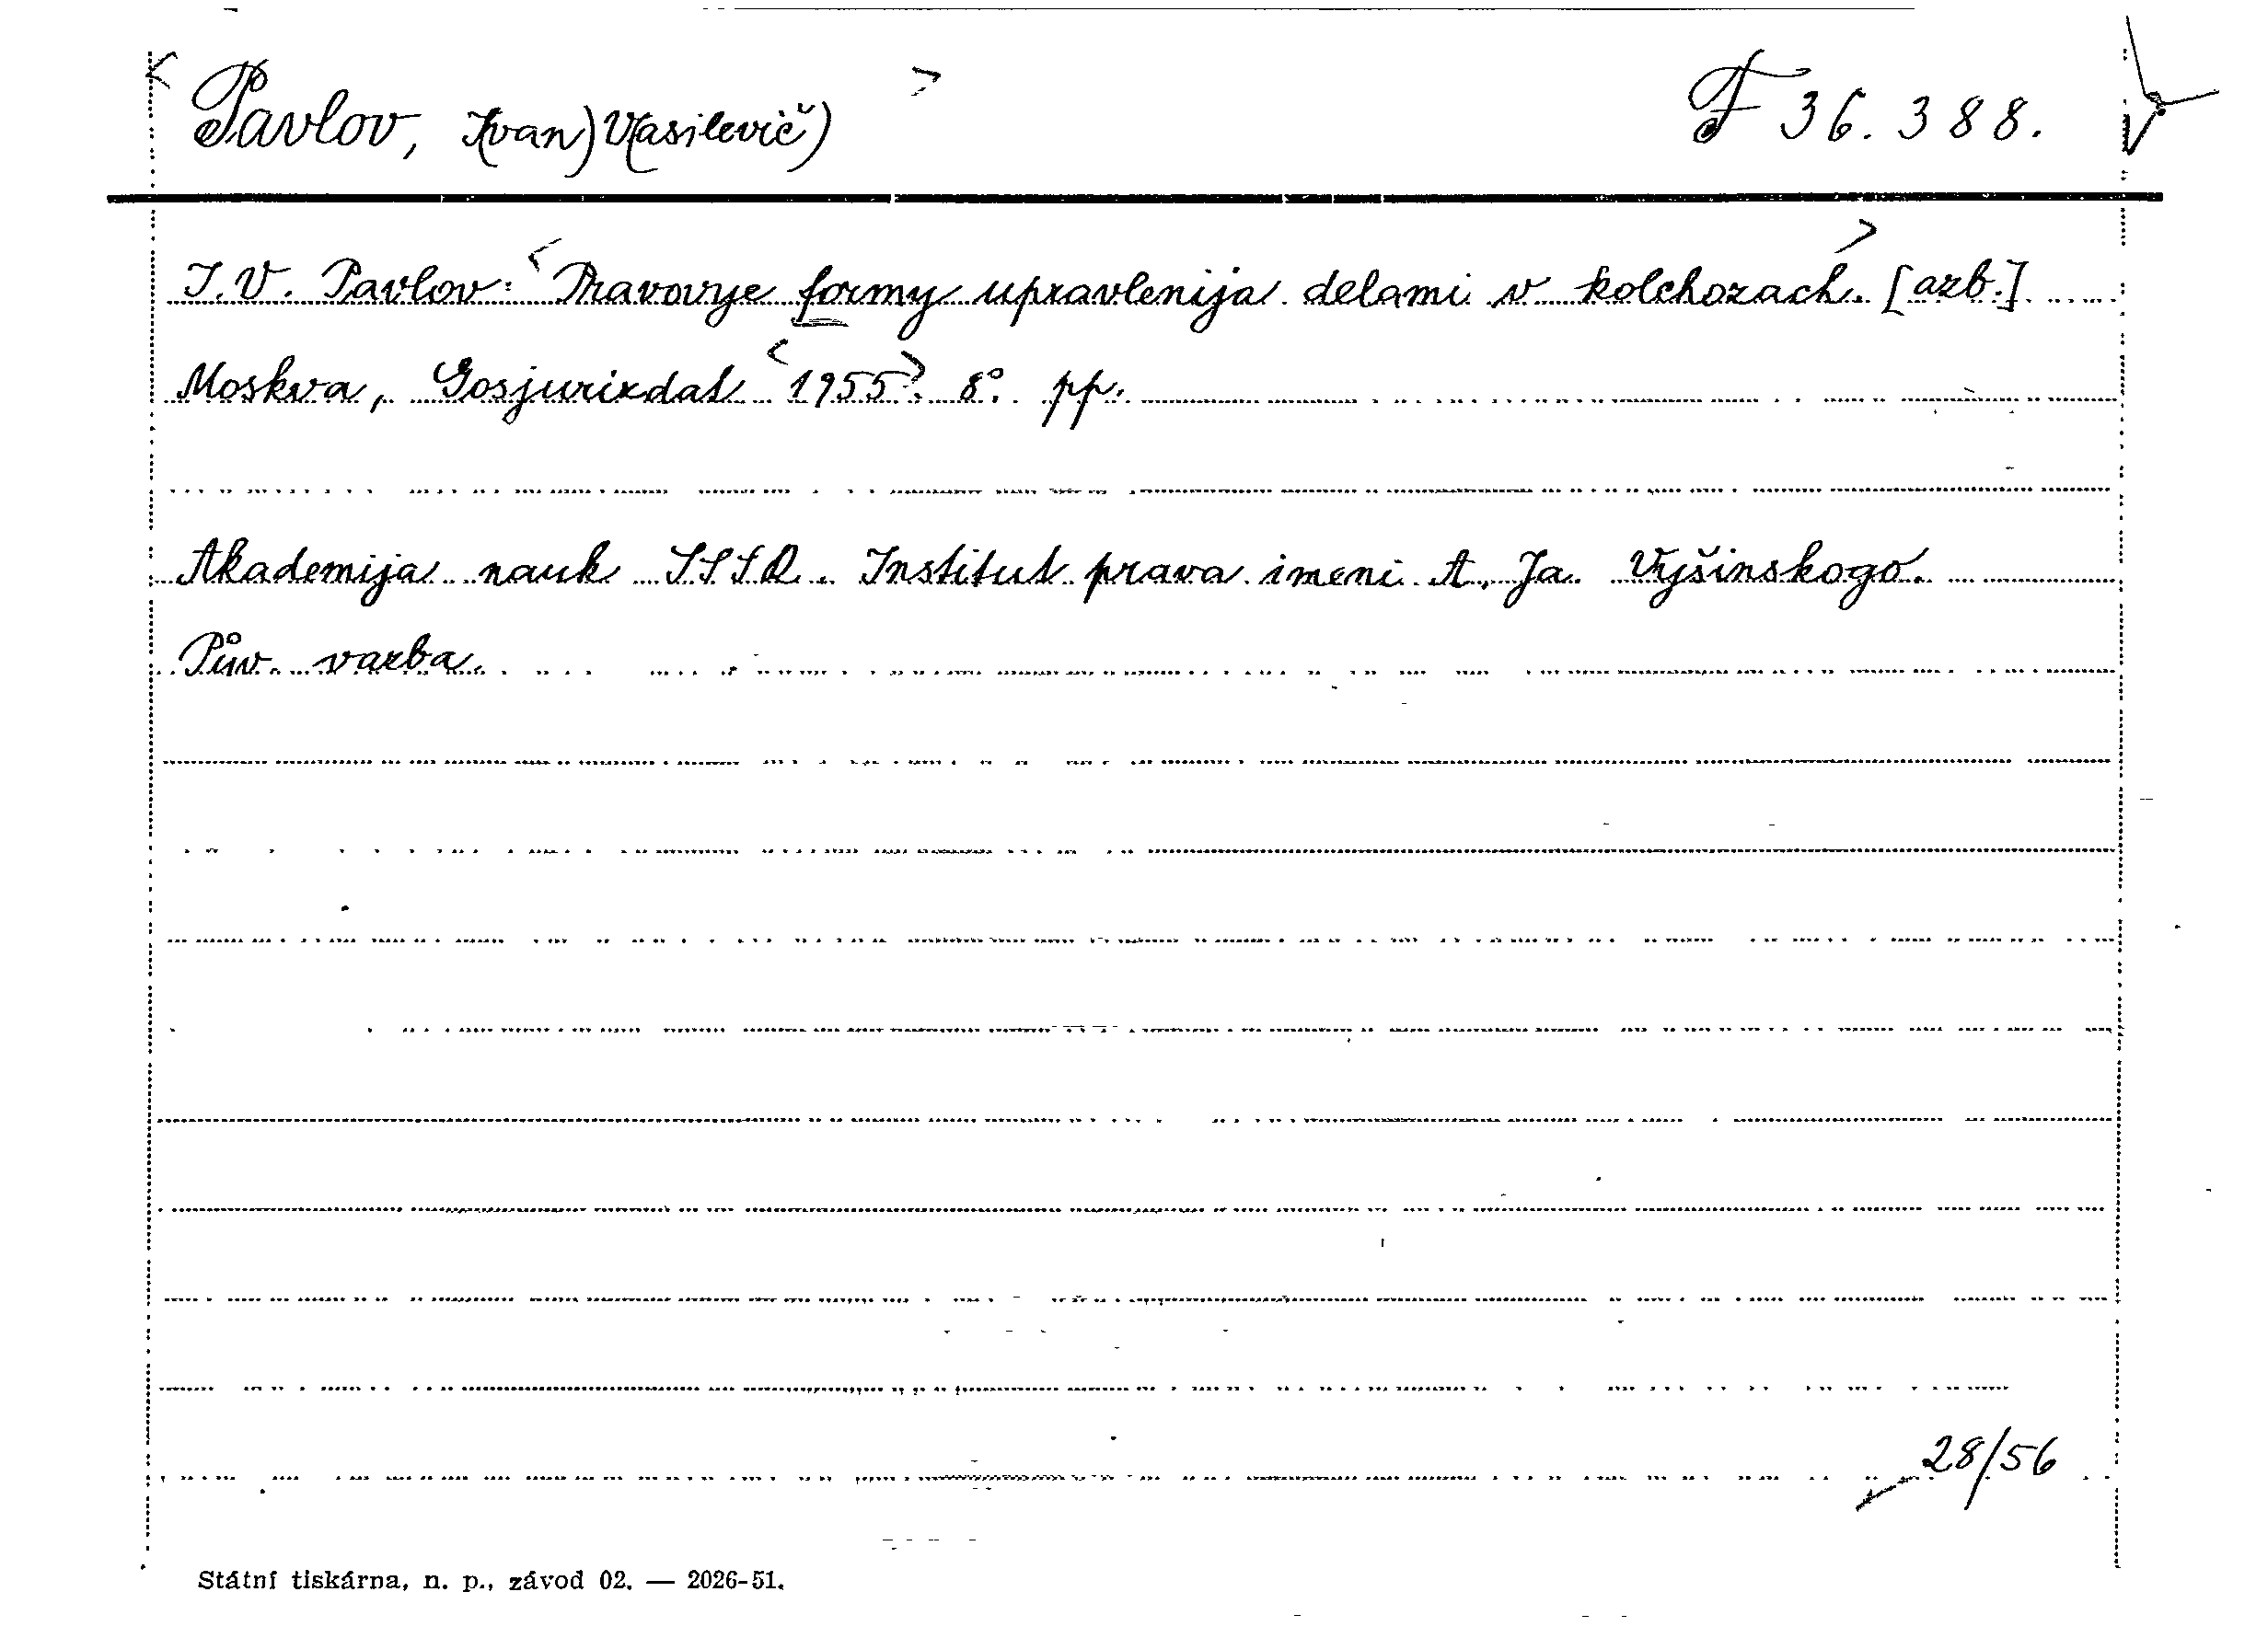 < Pavlov, I(van) V(asilevič) > F 36.388.
I. V. Pavlov: <Pravovye formy upravlenija delami v kolchozach.> [azb.]
Moskva, Gosjurizdat <1955>. 8°. pp.
Akademija nauk SSSR. Institut prava imeni A. Ja. Vyšinskogo.
Pův. vazba.
28/56
Státní tiskárna, n. p., závod 02. — 2026-51.